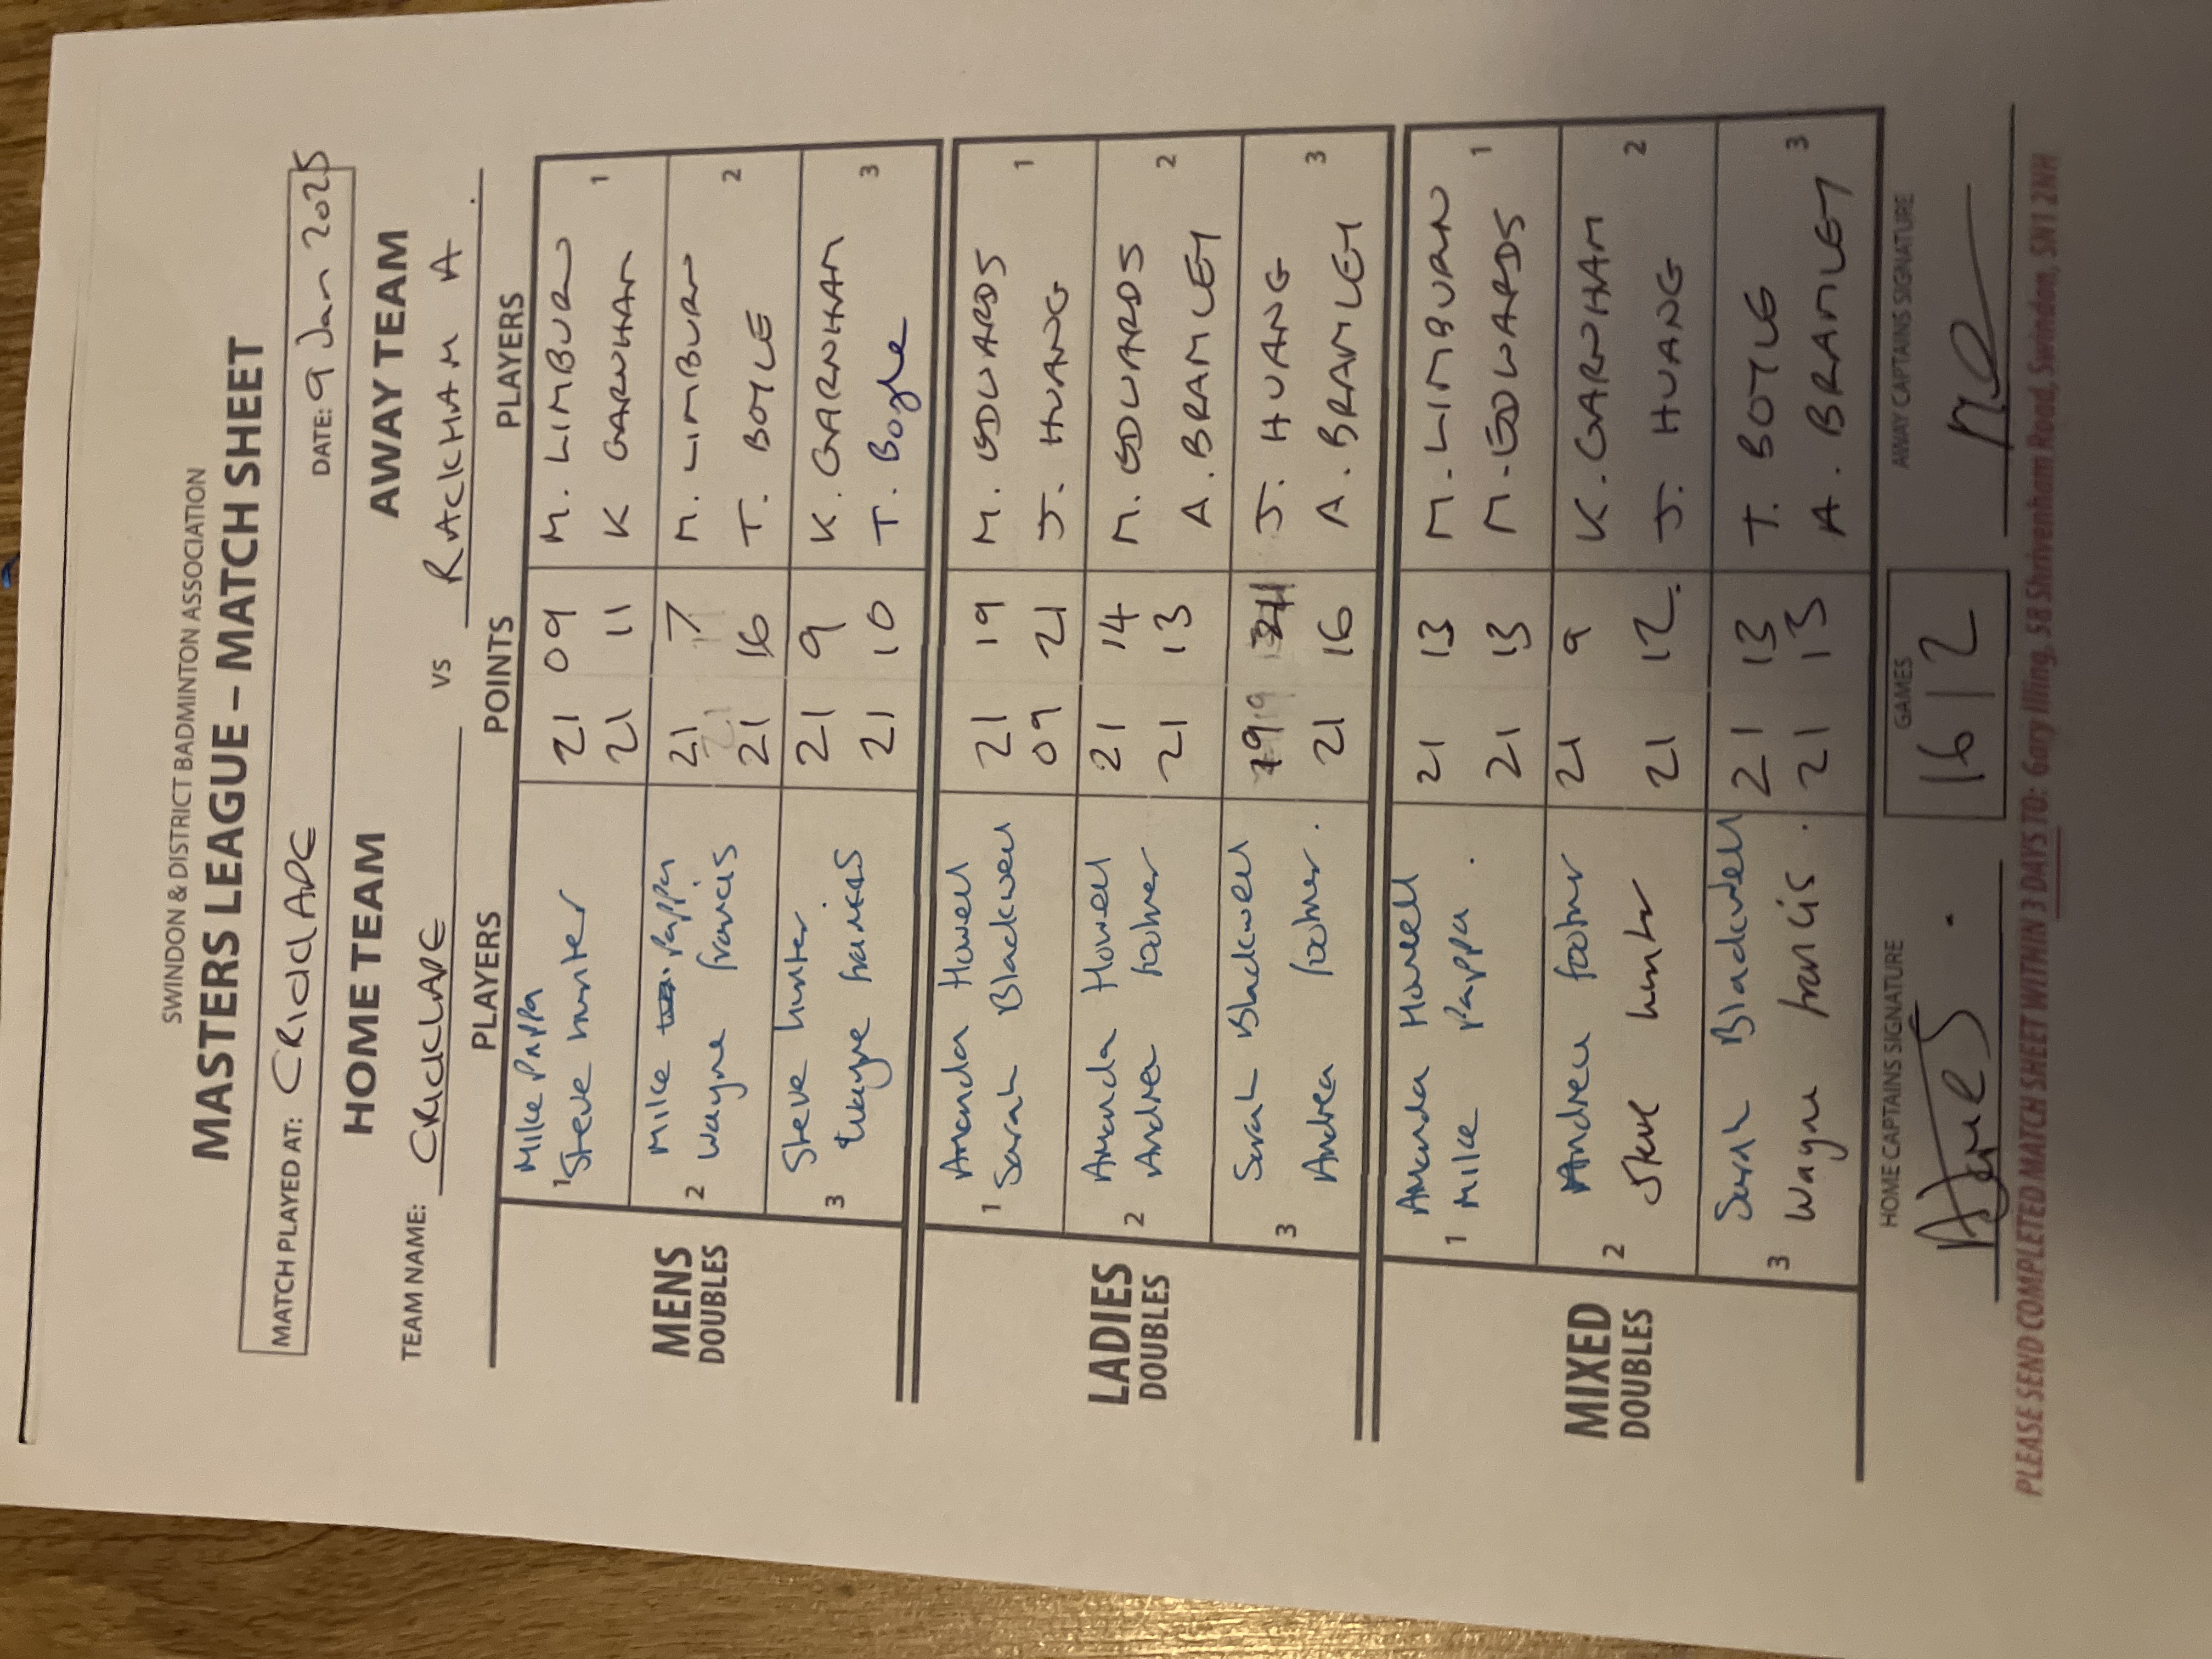 SWINDON & DISTRICT BADMINTON ASSOCIATION
MASTERS LEAGUE – MATCH SHEET
MATCH PLAYED AT: CRICKLADE DATE: 9 Jan 2025
HOME TEAM AWAY TEAM
TEAM NAME: CRICKLADE VS RACKHAM A
PLAYERS POINTS PLAYERS
MENS DOUBLES
1 Mike Pappa 21 09 M. LIMBURN 1
Steve hunter 21 11 K GARNHAM
2 Mike Pappa 21 7 M. LIMBURN 2
Wayne francis 21 16 T. BOYLE
3 Steve hunter 21 9 K. GARNHAM 3
Wayne francis 21 10 T. Boyle
LADIES DOUBLES
1 Amanda Howell 21 19 M. EDWARDS 1
Sarah Blackwell 09 21 J. HUANG
2 Amanda Howell 21 14 M. EDWARDS 2
Andrea footner 21 13 A. BRAMLEY
3 Sarah Blackwell 19 21 J. HUANG 3
Andrea footner. 21 16 A. BRAMLEY
MIXED DOUBLES
1 Amanda Howell 21 13 M. LIMBURN 1
Mike Pappa. 21 13 M. EDWARDS
2 Andrea footner 21 9 K. GARNHAM 2
Steve hunter 21 12. J. HUANG
3 Sarah Blackwell 21 13 T. BOYLE 3
Wayne francis. 21 13 A. BRAMLEY
HOME CAPTAINS SIGNATURE GAMES AWAY CAPTAINS SIGNATURE
16 | 2
PLEASE SEND COMPLETED MATCH SHEET WITHIN 3 DAYS TO: Gary Illing, 58 Shrivenham Road, Swindon, SN1 2NH